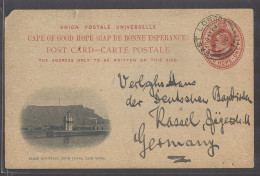 UNION POSTALE UNIVERSELLE
CAPE OF GOOD HOPE (CAP DE BONNE ESPERANCE)
POST CARD—CARTE POSTALE
THE ADDRESS ONLY TO BE WRITTEN ON THIS SIDE
Verlagshaus
der Deutschen Baptisten
Kassel, Jägerstr.
Germany
TABLE MOUNTAIN, CAPE TOWN